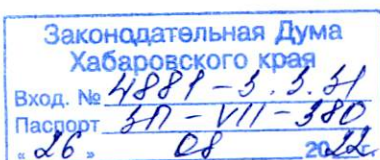 Законодательная Дума
Хабаровского края
Вход. № 4881-3.3.31
Паспорт ЗП-VII-380
"26" 08 2022г.